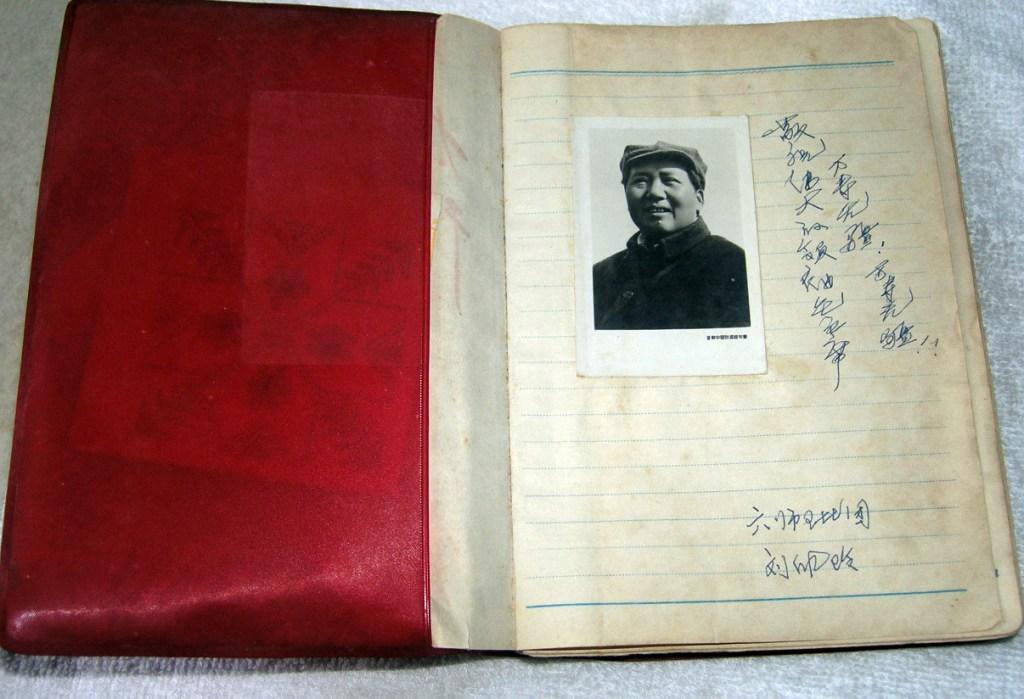 敬祝伟大的领袖毛主席
万寿无疆!
万寿无疆!!
六师
刘